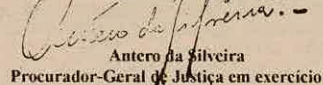 Antero da Silveira.-
Antero da Silveira
Procurador-Geral de Justiça em exercício